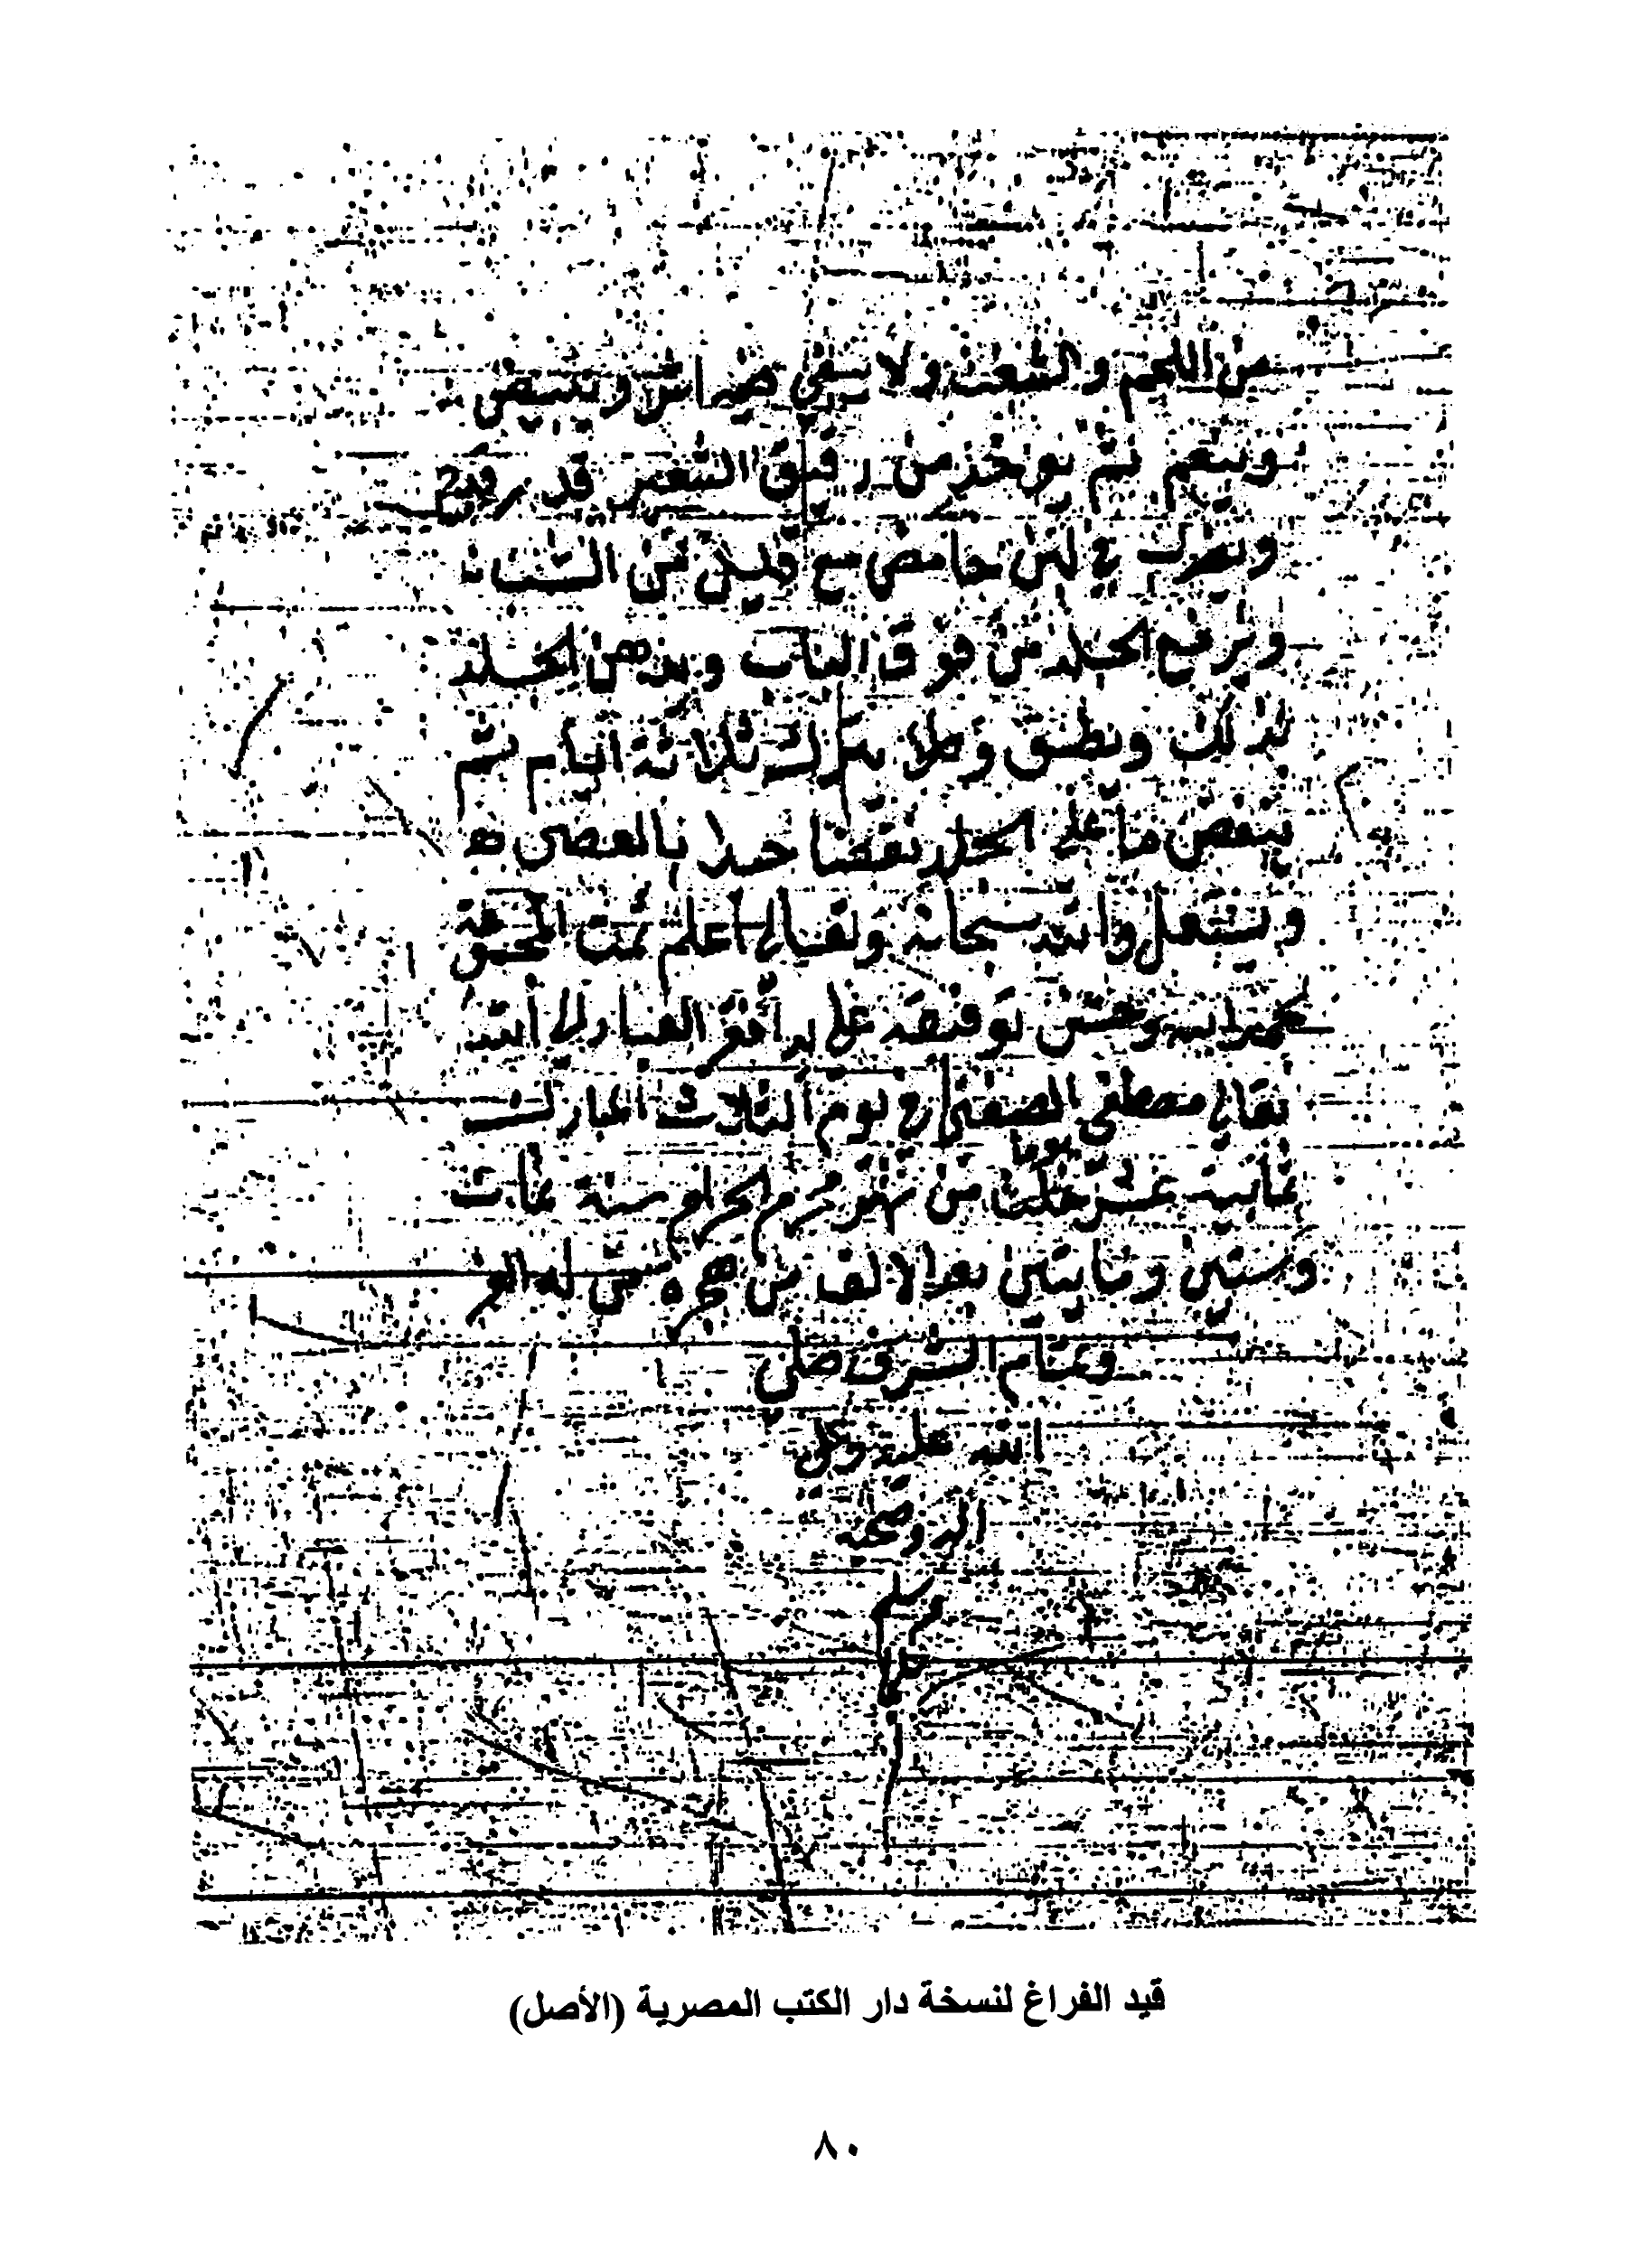 من اللحم والشعث ولا يبقى فيها شى وتبيض
وتنعم ثم يوخذ من دقيق الشعير قدر
ويضرب فى لبن حامض مع قليل من الشب
ويرفع الجلد من فوق الباب ويدهن الجلد
لذلك ويطبق وطلا يترك ثلاثة ايام ثم
ينفض ما على الجلد نفضا جيدا بالعصى
ويستعمل والله سبحانه وتعالى اعلم تمت
بحمد الله وحسن توفيقه على يد افقر العباد الى الله
تعالى مصطفى الصفتى فى يوم الثلاث المبارك
ثمانية عشر يوما خلت من شهر محرم الحرام سنة ثمان
وستين ومايتين بعد الالف من هجرة من له العز
وتمام الشرف صلى
الله عليه وعلى
اله وصحبه
وسلم
قيد الفراغ لنسخة دار الكتب المصرية (الأصل)
٨٠